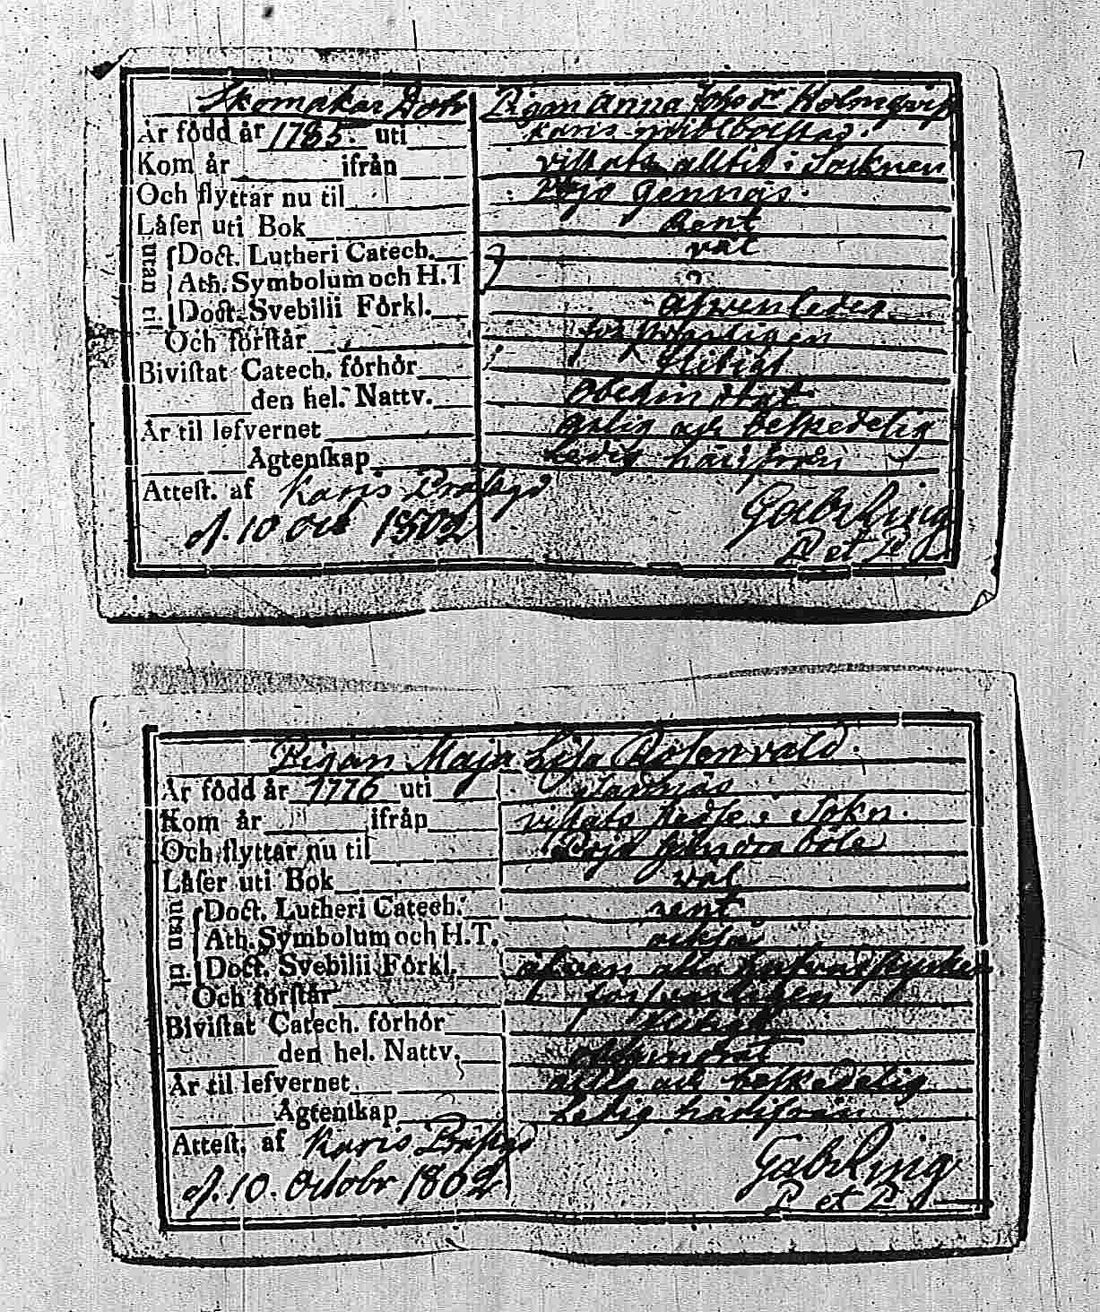 Skomakar Dotr Pigan Anna Johs Dr Holmqvist
År född år 1785. uti Karis
Kom år ifrån vistats alltid i Socknen
Och flyttar nu til Pojo Gennäs.
Låser uti Bok Rent
utan til. Doct. Lutheri Catech. väl
Ath. Symbolum och H.T
Doct. Svebilii Förkl. äfvenledes
Och förstår försvarligen
Bivistat Catech. förhör flitigt
den hel. Nattv. obehindrat
Är til lefvernet ärlig och beskedelig
Ägtenskap Ledig härifrån
Attest. af Karis Prästgd
d. 10 Oct 1802 Gabr Ling
P et P
Pigan Maja Lisa Rosenvald.
Är född år 1776 uti
Kom år ifrån vistats här i Sokn.
Och flyttar nu til Pojo
Låser uti Bok väl
utan til. Doct. Lutheri Catech. rent
Ath. Symbolum och H.T. också
Doct. Svebilii Förkl. äfven alla
Och förstår försvarligen
Bivistat Catech. förhör flitigt
den hel. Nattv. obehindrat
Är til lefvernet ärlig och beskedelig
Ägtenskap Ledig härifrån
Attest. af Karis Prästgd
d. 10. Octobr 1802 Gabr Ling
P et P